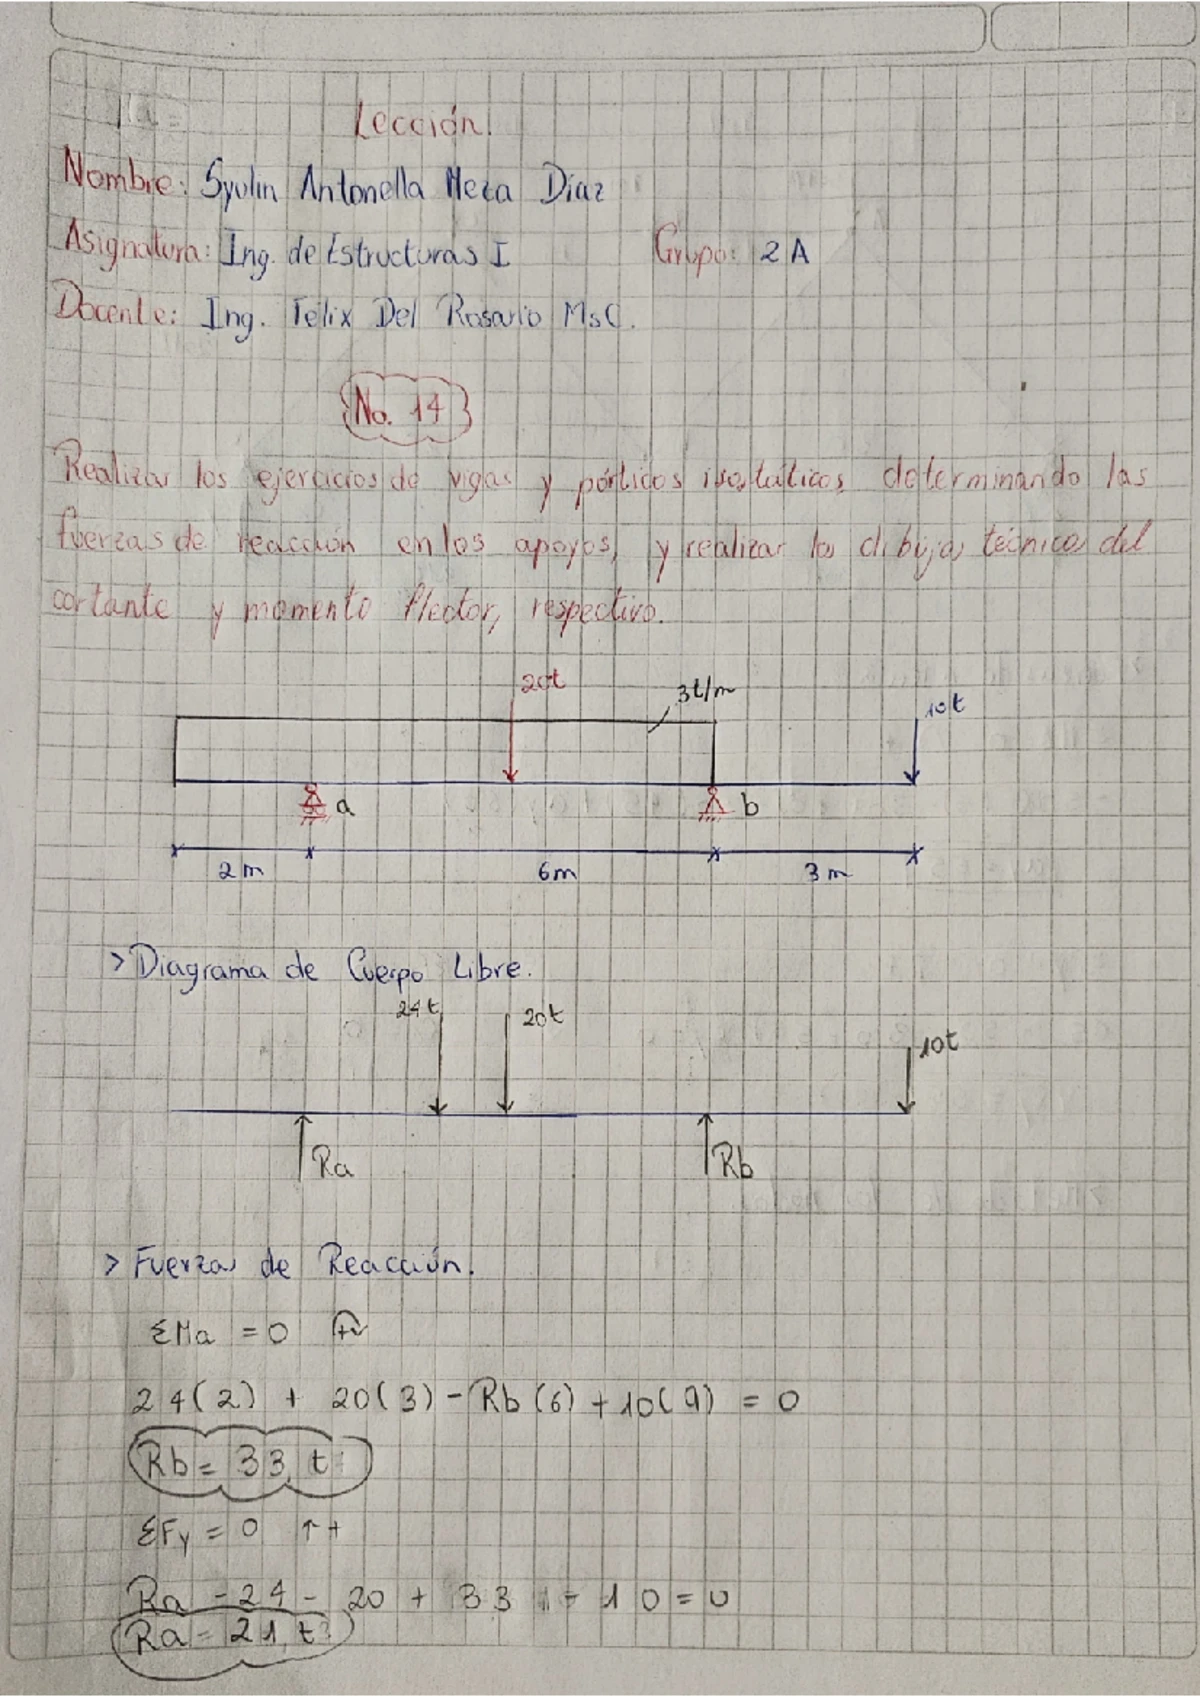 Lección.
Nombre: Syulin Antonella Meza Díaz
Asignatura: Ing. de Estructuras I Grupo: 2 A
Docente: Ing. Félix Del Rosario MsC.
No. 14
Realizar los ejercicios de vigas y pórticos isostáticos, determinando las
fuerzas de reacción en los apoyos, y realizar los dibujos técnicos del
cortante y momento flector, respectivo.
20t
3t/m
10t
a
b
2m
6m
3m
> Diagrama de Cuerpo Libre.
24t
20t
10t
Ra
Rb
> Fuerzas de Reacción.
ΣMa = 0 +
24(2) + 20(3) - Rb(6) + 10(9) = 0
Rb = 33 t
ΣFy = 0 ↑+
Ra - 24 - 20 + 33 - 10 = 0
Ra = 21 t